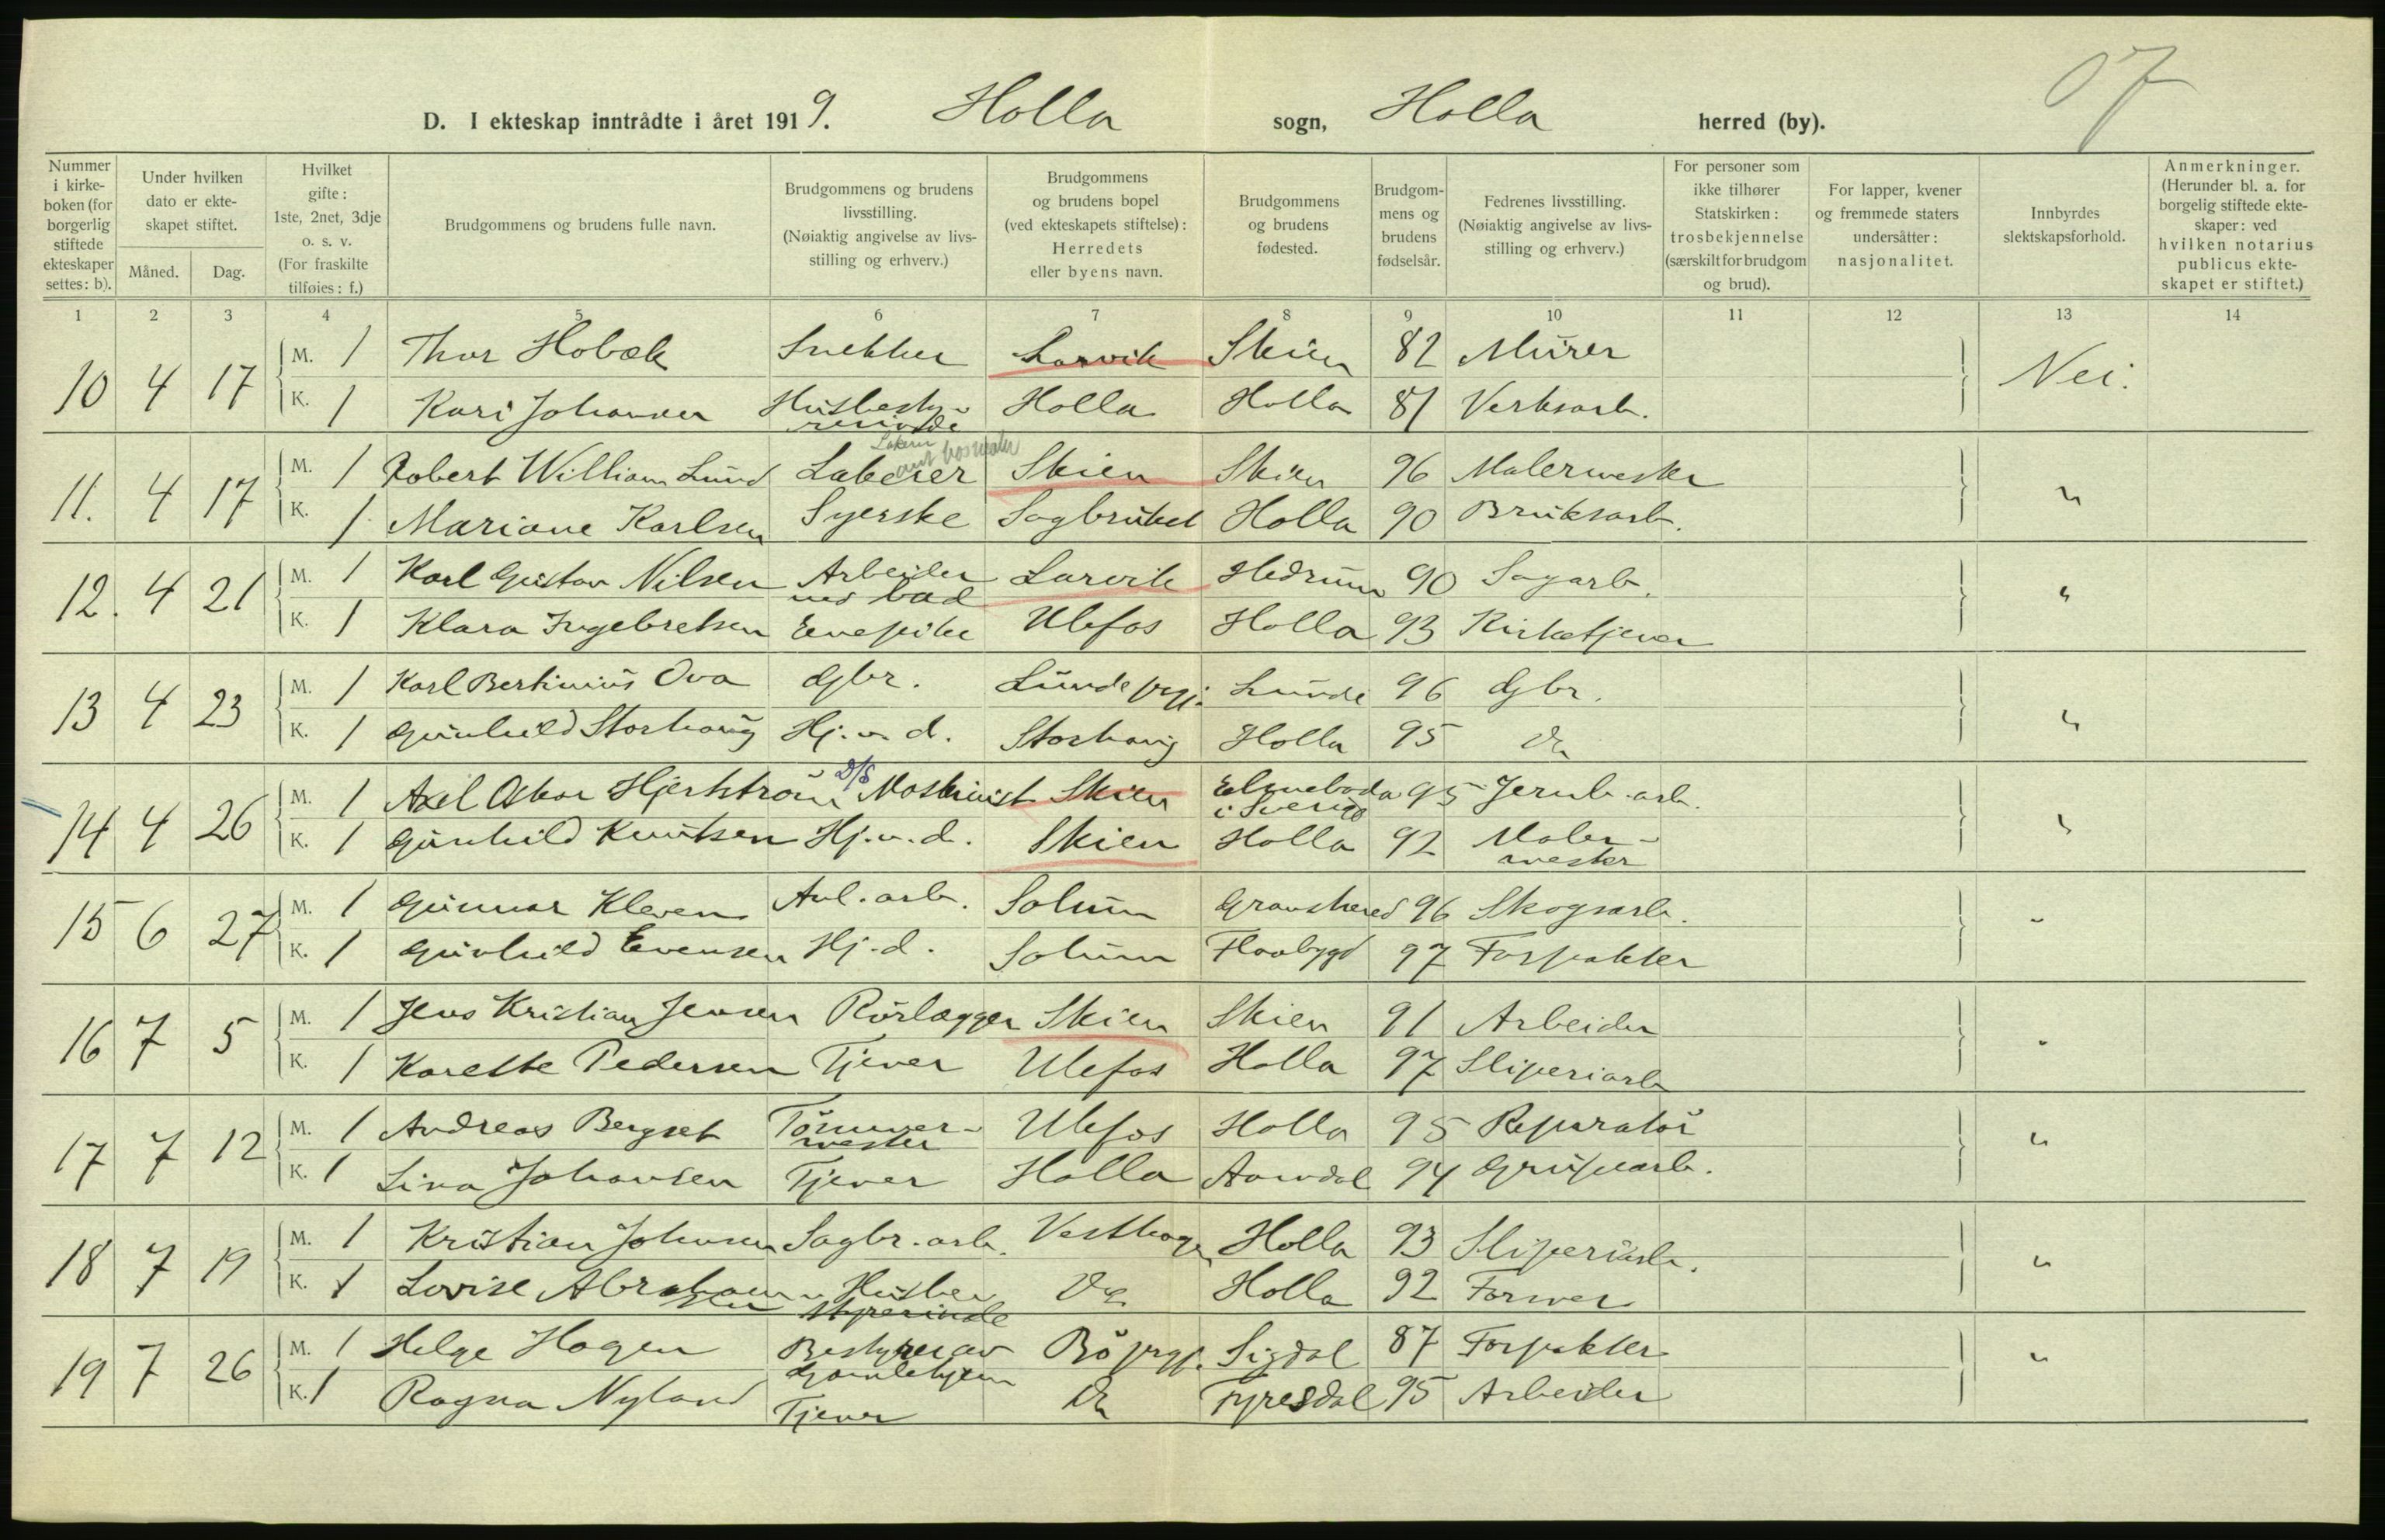 07
D. I ekteskap inntrådte i året 1919. Holla sogn, Holla herred (by).
Nummer i kirkeboken (for borgerlig stiftede ekteskaper settes: b).
Under hvilken dato er ekteskapet stiftet.
Måned. Dag.
Hvilket gifte: 1ste, 2net, 3dje o. s. v. (For fraskilte tilføies: f.)
Brudgommens og brudens fulle navn.
Brudgommens og brudens livsstilling. (Nøiaktig angivelse av livsstilling og erhverv.)
Brudgommens og brudens bopel (ved ekteskapets stiftelse): Herredets eller byens navn.
Brudgommens og brudens fødested.
Brudgommens og brudens fødselsår.
Fedrenes livsstilling. (Nøiaktig angivelse av livsstilling og erhverv.)
For personer som ikke tilhører Statskirken: trosbekjennelse (særskilt for brudgom og brud).
For lapper, kvener og fremmede staters undersåtter: nasjonalitet.
Innbyrdes slektskapsforhold.
Anmerkninger. (Herunder bl. a. for borgelig stiftede ekteskaper: ved hvilken notarius publicus ekteskapet er stiftet.)
1 2 3 4 5 6 7 8 9 10 11 12 13 14
10 4 17 M. 1 Thor Hobæk Snekker Larvik Skien 82 Murer Nei.
K. 1 Kari Johansen Husbestyrerinde Holla Holla 81 Verksarb.
11. 4 17 M. 1 Robert William Lund Laberer Skien Skien 96 Malermester "
K. 1 Mariane Karlsen Syerske Sagbruket Holla 90 Bruksarb.
12. 4 21 M. 1 Karl Gustav Nilsen Arbeider ved bad Larvik Hedrum 90 Sagarb. "
K. 1 Klara Ingebretsen Enepike Ulefos Holla 93 Kirketjener
13 4 23 M. 1 Karl Bertinius Ova Gbr. Lunde prgj. Lunde 96 Gbr. "
K. 1 Gunhild Storhaug Hj. v. d. Storhaug Holla 95 Do
14 4 26 M. 1 Axel Oskar Hjertström D/S Maskinist Skien Elmeboda i Sverige 95 Jernb. arb. "
K. 1 Gunhild Knutsen Hj. v. d. Skien Holla 92 Malermester
15 6 27 M. 1 Gunnar Kleven Anl. arb. Solum Gransherred 96 Skogsarb. "
K. 1 Gunhild Evensen Hj. d. Solum Flaabygd 97 Forpakter
16 7 5 M. 1 Jens Kristian Jensen Rörlægger Skien Skien 91 Arbeider "
K. 1 Karette Pedersen Tjener Ulefos Holla 97 Sliperiarb
17 7 12 M. 1 Andreas Bergset Tömmermester Ulefos Holla 95 Reparatör "
K. 1 Lina Johansen Tjener Holla Aamdal 94 Grubearb.
18 7 19 M. 1 Kristian Johnsen Sagbr. arb. Vesthagen Holla 93 Sliperiarb. "
K. 1 Lovise Abrahamsen Husbestyrerinde Do Holla 92 Former
19 7 26 M. 1 Helge Hagen Bestyrer av Gamlehjem Bö prgj. Sigdal 87 Forpakter "
K. 1 Ragna Nyland Tjener Do Fyresdal 95 Arbeider